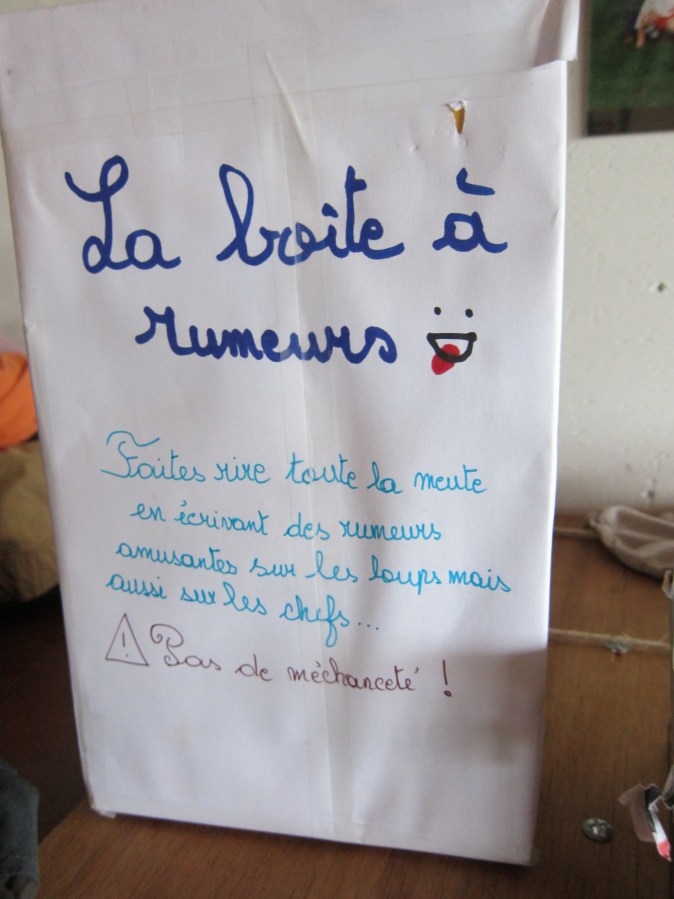 La boîte à
rumeurs
Faites rire toute la meute
en écrivant des rumeurs
amusantes sur les loups mais
aussi sur les chefs...
! Pas de méchanceté !